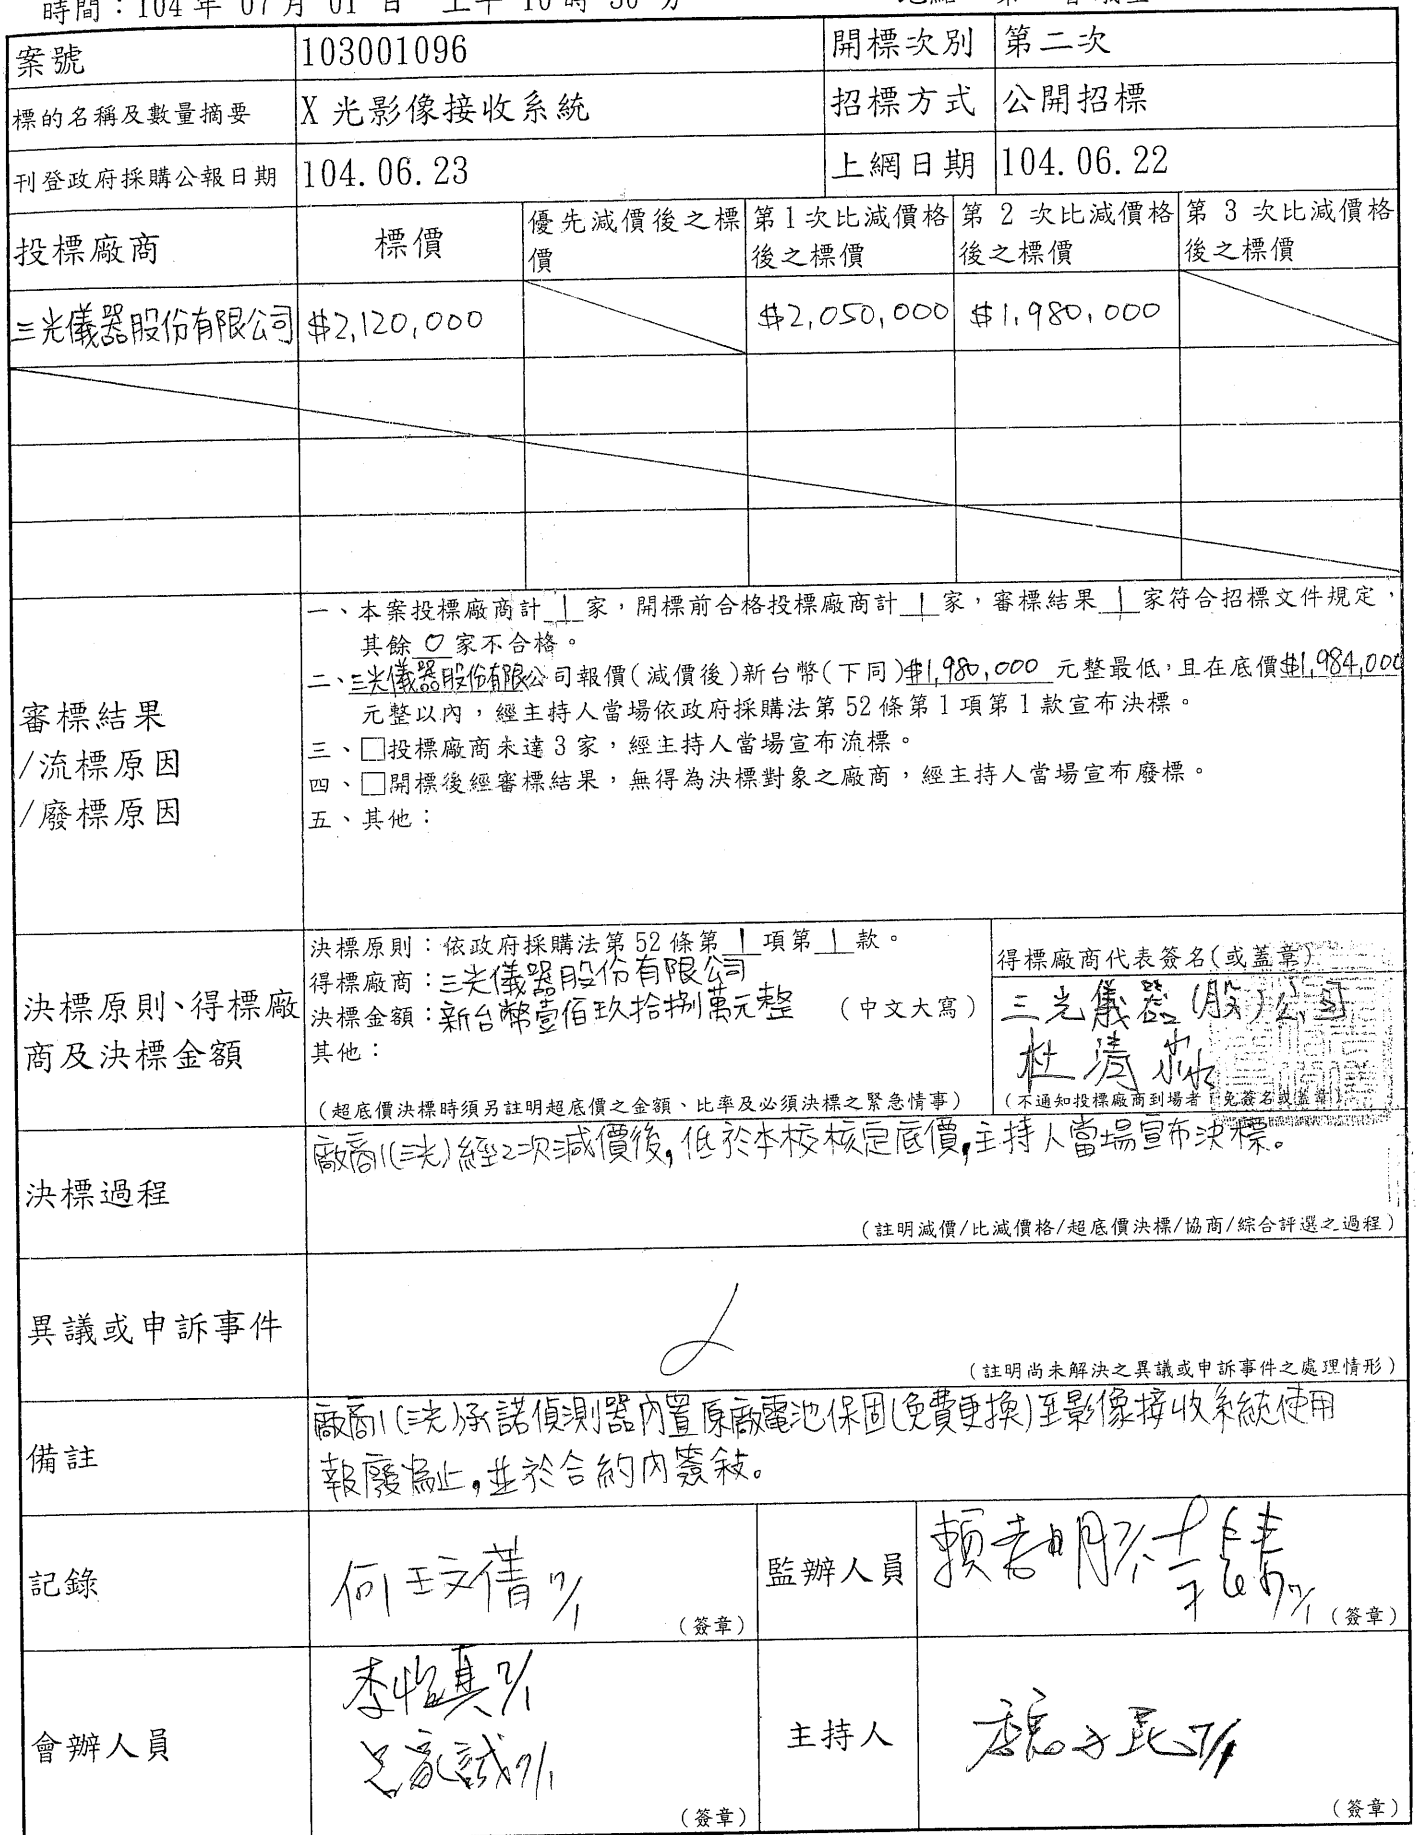 時間：104 年 07 月 01 日 上午 10 時 30 分
案號 103001096 開標次別 第二次
標的名稱及數量摘要 X 光影像接收系統 招標方式 公開招標
刊登政府採購公報日期 104.06.23 上網日期 104.06.22
投標廠商 標價 優先減價後之標價 第 1 次比減價格後之標價 第 2 次比減價格後之標價 第 3 次比減價格後之標價
三光儀器股份有限公司 $2,120,000 $2,050,000 $1,980,000
審標結果
/流標原因
/廢標原因
一、本案投標廠商計 1 家，開標前合格投標廠商計 1 家，審標結果 1 家符合招標文件規定，
其餘 0 家不合格。
二、三光儀器股份有限公司報價(減價後)新台幣(下同)$1,980,000 元整最低，且在底價$1,984,000
元整以內，經主持人當場依政府採購法第 52 條第 1 項第 1 款宣布決標。
三、□投標廠商未達 3 家，經主持人當場宣布流標。
四、□開標後經審標結果，無得為決標對象之廠商，經主持人當場宣布廢標。
五、其他：
決標原則、得標廠
商及決標金額
決標原則：依政府採購法第 52 條第 1 項第 1 款。
得標廠商：三光儀器股份有限公司
決標金額：新台幣壹佰玖拾捌萬元整 (中文大寫)
其他：
(超底價決標時須另註明超底價之金額、比率及必須決標之緊急情事)
得標廠商代表簽名(或蓋章)
三光儀器(股)公司
杜清
(不通知投標廠商到場者，免簽名或蓋章)
決標過程
廠商1(三光)經2次減價後，低於本校核定底價，主持人當場宣布決標。
(註明減價/比減價格/超底價決標/協商/綜合評選之過程)
異議或申訴事件
(註明尚未解決之異議或申訴事件之處理情形)
備註
廠商1(三光)承諾偵測器內置原廠電池保固(免費更換)至影像接收系統使用
報廢為止，並於合約內簽敍。
記錄 何玟蒨 7/1 (簽章) 監辦人員 7/1 (簽章)
會辦人員 李怡真 7/1
呂 誠 7/1 (簽章)
主持人 7/1 (簽章)